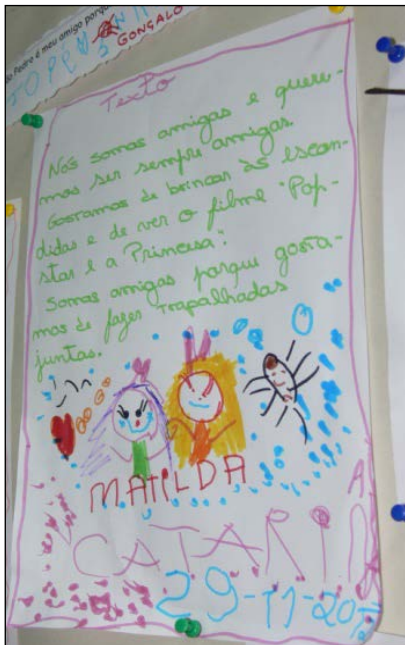 do Pedro é meu amigo porqu
GONÇALO
Texto
Nós somos amigas e quere-
mos ser sempre amigas.
Gostamos de brincar às escon-
didas e de ver o filme "Pop-
star e a Princesa".
Somos amigas porque gosta-
mos de fazer trapalhadas
juntas.
MATILDA
CATARINA